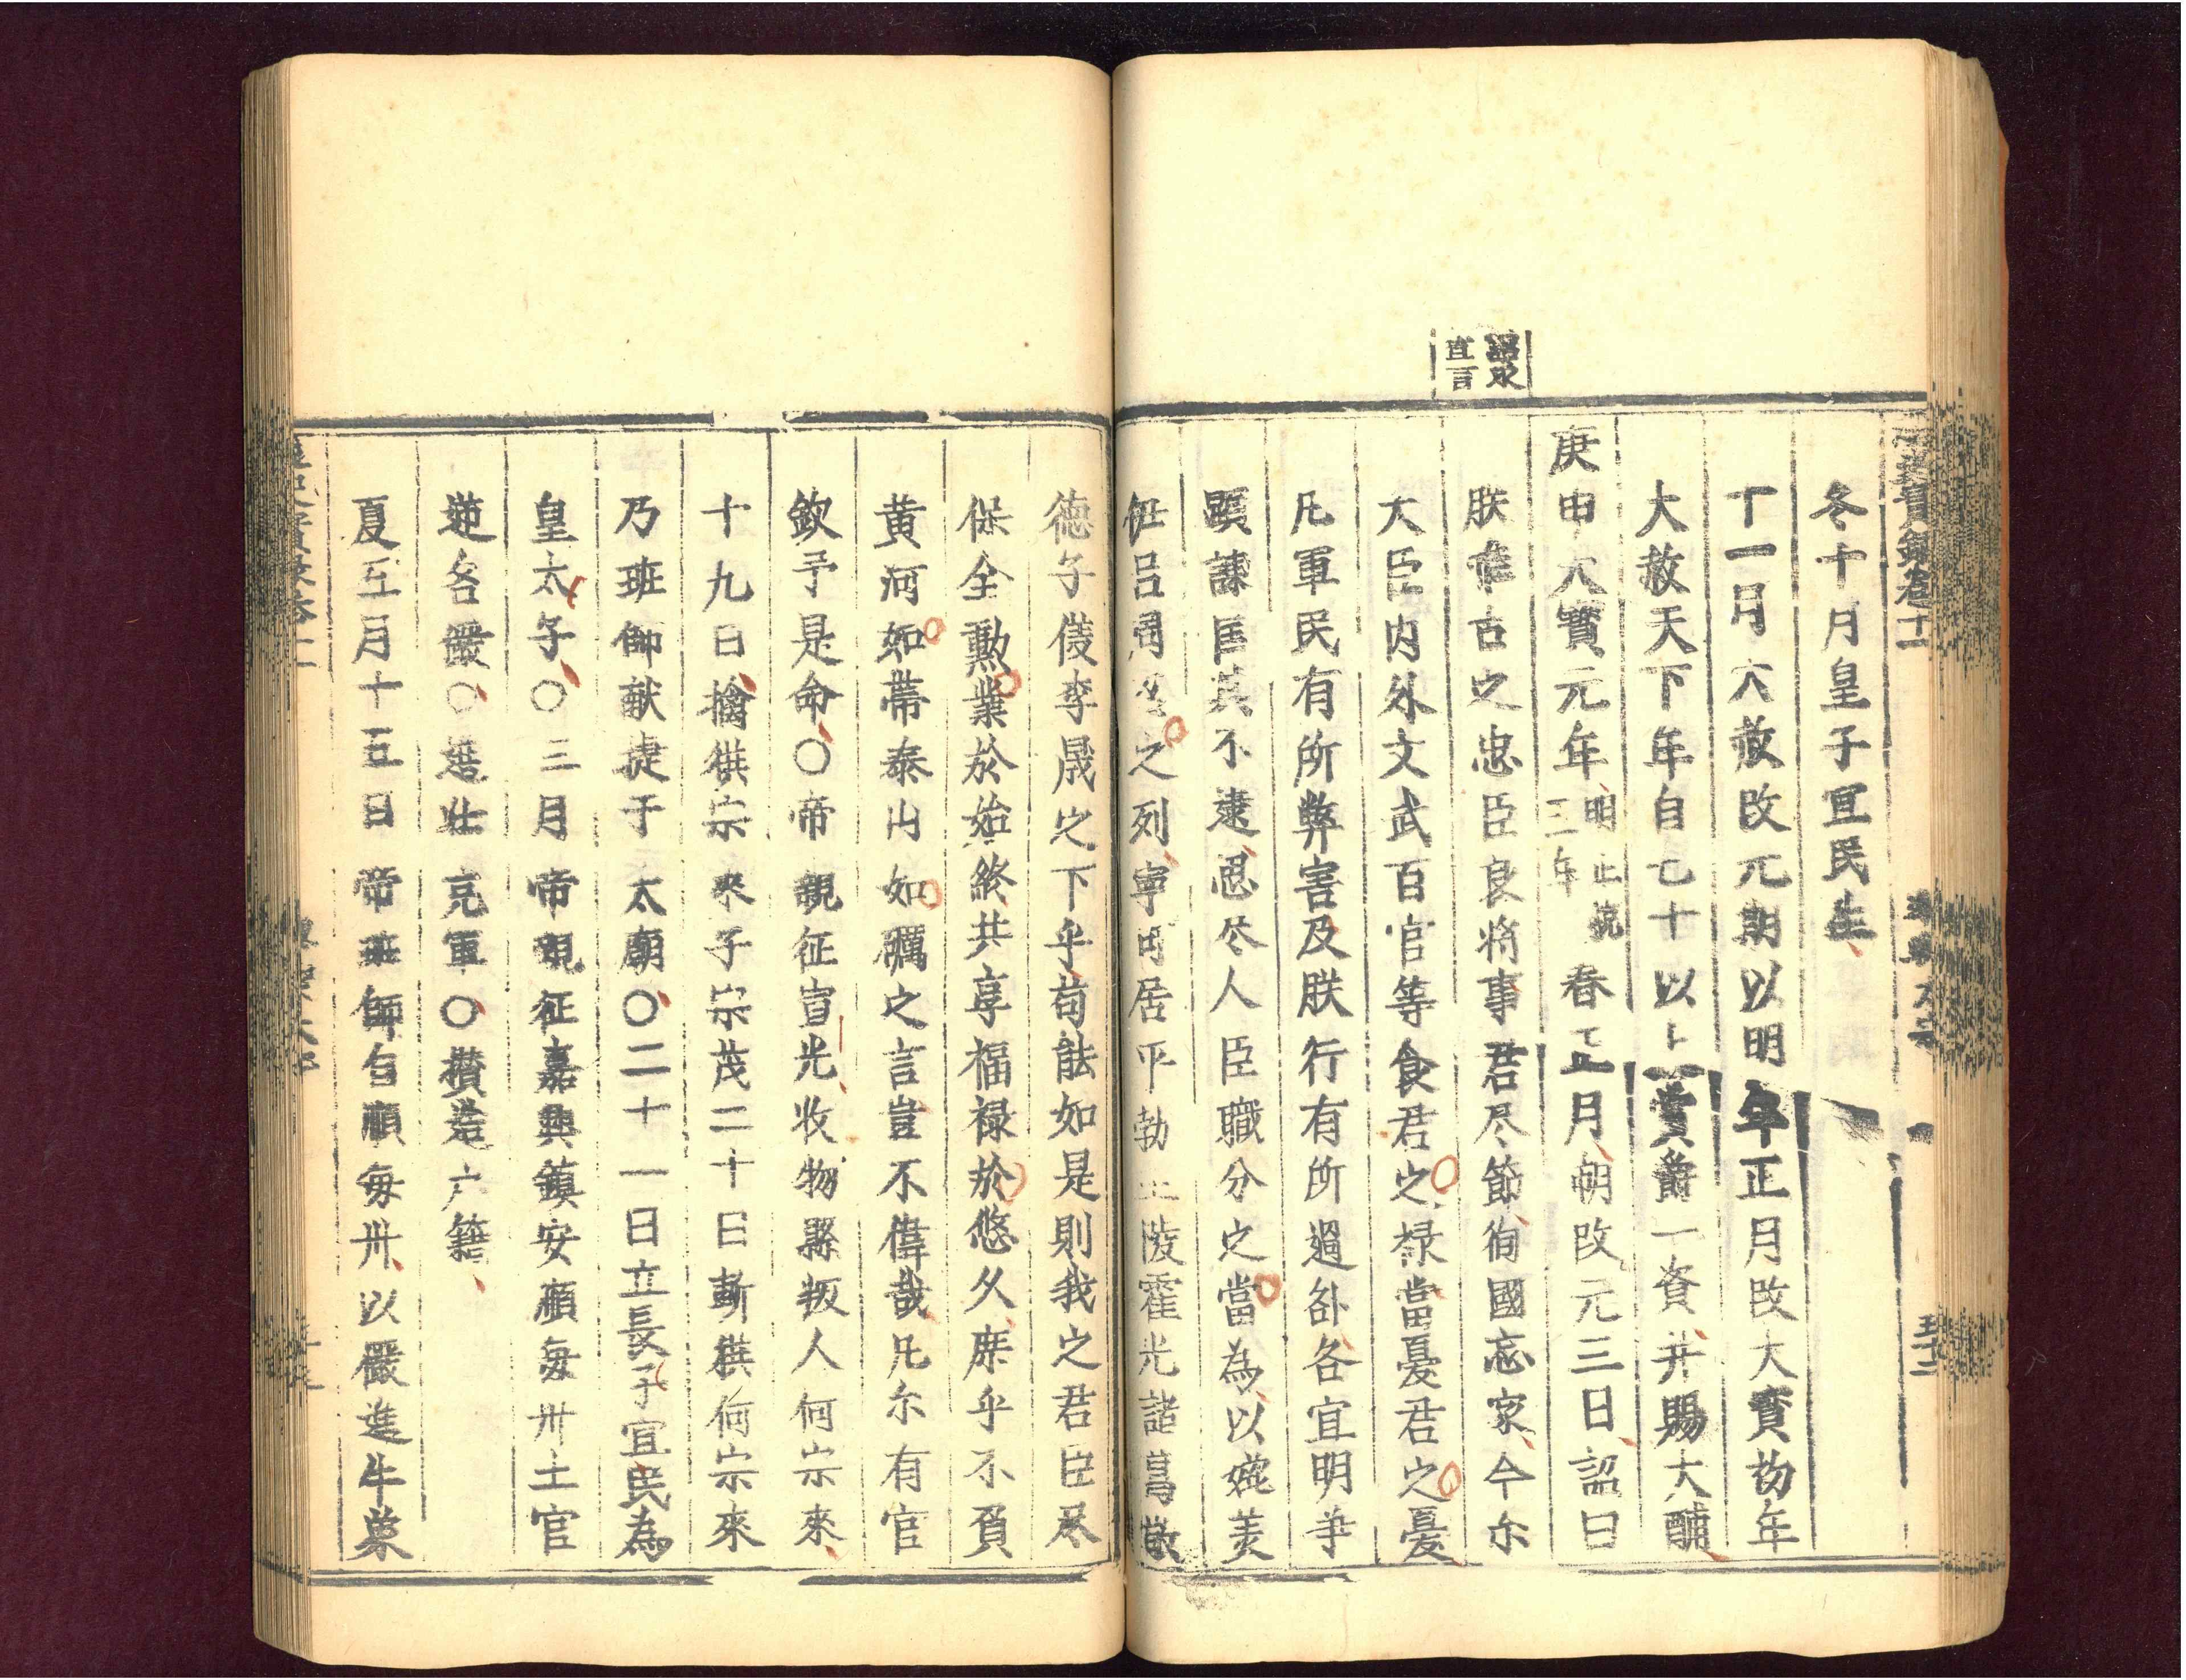 詔求
直言
冬十月皇子宜民生
十一月六赦改元期以明年正月改大寳初年
大赦天下年自七十以上賞爵一資并賜大酺
庚申大寳元年明正統三年春正月朔改元三日詔曰
朕惟古之忠臣良將事君尽節徇國忘家今尒
大臣内外文武百官等食君之禄當憂君之憂
凡軍民有所弊害及朕行有所過㕁各宜明爭
顕諫匡其不逮忍尽人臣職分之當為以媲美
伊吕周之列寧肯居平勃王陵霍光諸葛敬
徳子儀李晟之下乎苟能如是則我之君臣尽
保全勲業於始終共享福禄於悠久庶乎不負
黄河如帯泰山如礪之言豈不偉哉凡尒有官
欽予是命○帝親征宣光收物縣叛人何宗來
十九日擒供宗来子宗茂二十日斬供何宗來
乃班師献捷于太廟○二十一日立長子宜民為
皇太子○三月帝親征嘉興鎮安順每卅土官
造各嚴○造壮克軍○攅造户籍
夏五月十五日帝班師自順每卅以嚴進牛菓